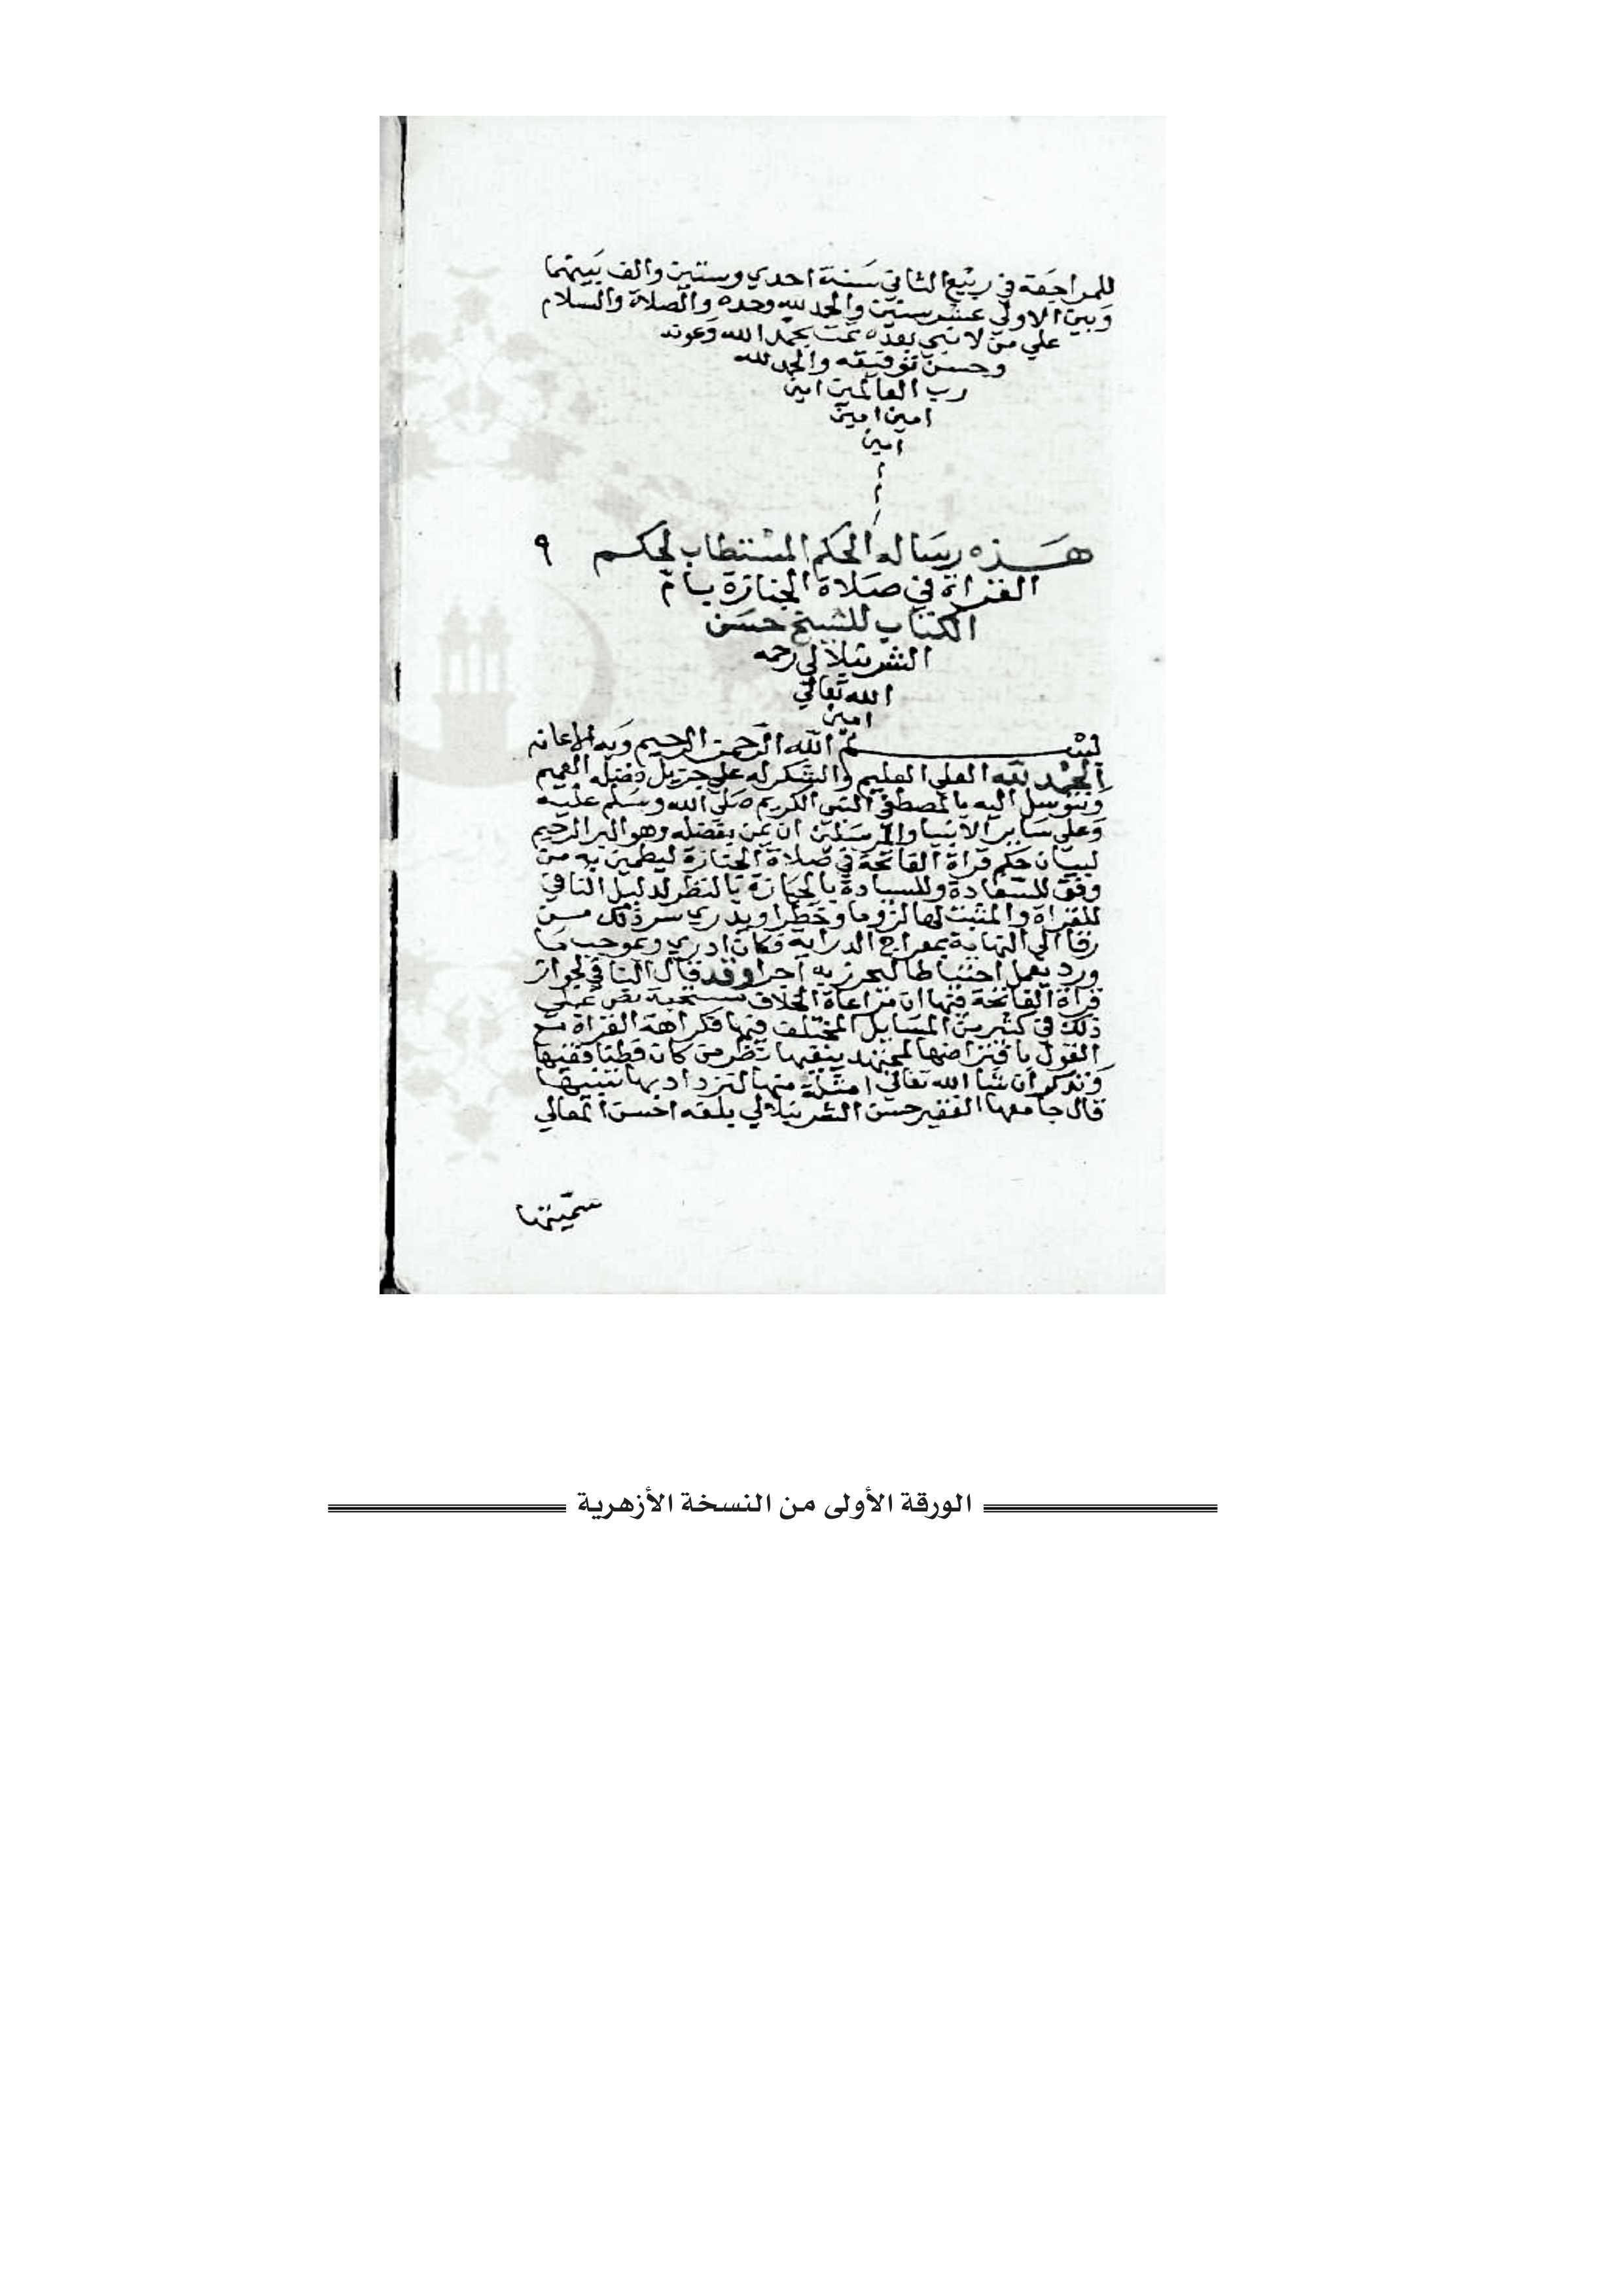 للمراجعة في ربيع الثاني سنة احدي وستين والف بينهما
وبين الاولي عشر سنين والحمد لله وحده والصلاة والسلام
علي من لا نبي بعده تمت بحمد الله وعونه
وحسن توفيقه والحمد لله
رب العالمين امين
امين امين
امين
هذه رساله الحكم المستطاب لحكم ٩
القراة في صلاة الجنازة بام
الكتاب للشيخ حسن
الشرنبلالي رحمه
الله تعالي
امين
بسم الله الرحمن الرحيم وبه الاعانه
الحمد لله العلي العليم والشكر له علي جزيل فضله العميم
ونتوسل اليه بالمصطفي النبي الكريم صلي الله وسلم عليه
وعلي ساير الانبيا والمرسلين ان يمن بفضله وهو البر الرحيم
لبيان حكم قراة الفاتحة في صلاة الجنازة ليطمين به من
وفق للسعادة وللسيادة بالحيازة بالنظر لدليل النافي
للقراة والمثبت لها لزوما وخطرا ويدري سر ذلك من
رقا الي النهاية بمعراج الدراية فكان ادري وبموجب ما
ورد يعمل احتياطا ليحرز به اجرا وقد قال النافي لجواز
قراة الفاتحة فيها ان مراعاة الخلاف مستحبة نص علي
ذلك في كثير من المسايل المختلف فيها فكراهة القراة مع
القول بافتراضها لمجتهد ينفيها نظر من كان فطنا فقيها
ونذكر ان شا الله تعالي امثلة منها لتزداد بها تنبيها
قال جامعها الفقير حسن الشرنبلالي بلغه احسن المعالي
سميتها
الورقة الأولى من النسخة الأزهرية